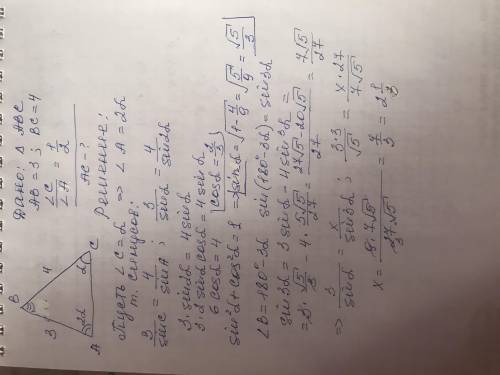 Дано: △ ABC
AB = 3; BC = 4
∠C / ∠A = 1/2
AC - ?
B
3
4
2α
α
A
C
Решение:
Пусть ∠C = α ⇒ ∠A = 2α
т. синусов:
3/sinC = 4/sinA; 3/sinα = 4/sin2α
3·sin2α = 4sinα
3·2 sinα cosα = 4sinα
6 cosα = 4 cosα = 2/3
sin²α + cos²α = 1 ⇒ sinα = √(1 - 4/9) = √(5/9) = √5/3
∠B = 180° - 3α sin(180° - 3α) = sin3α
sin3α = 3sinα - 4sin³α =
= 3·√5/3 - 4·5√5/27 = (27√5 - 20√5)/27 = 7√5/27
⇒ 3/sinα = x/sin3α; 3·3/√5 = x·27/7√5
x = 9·7√5/27√5 = 7/3 = 2 1/3